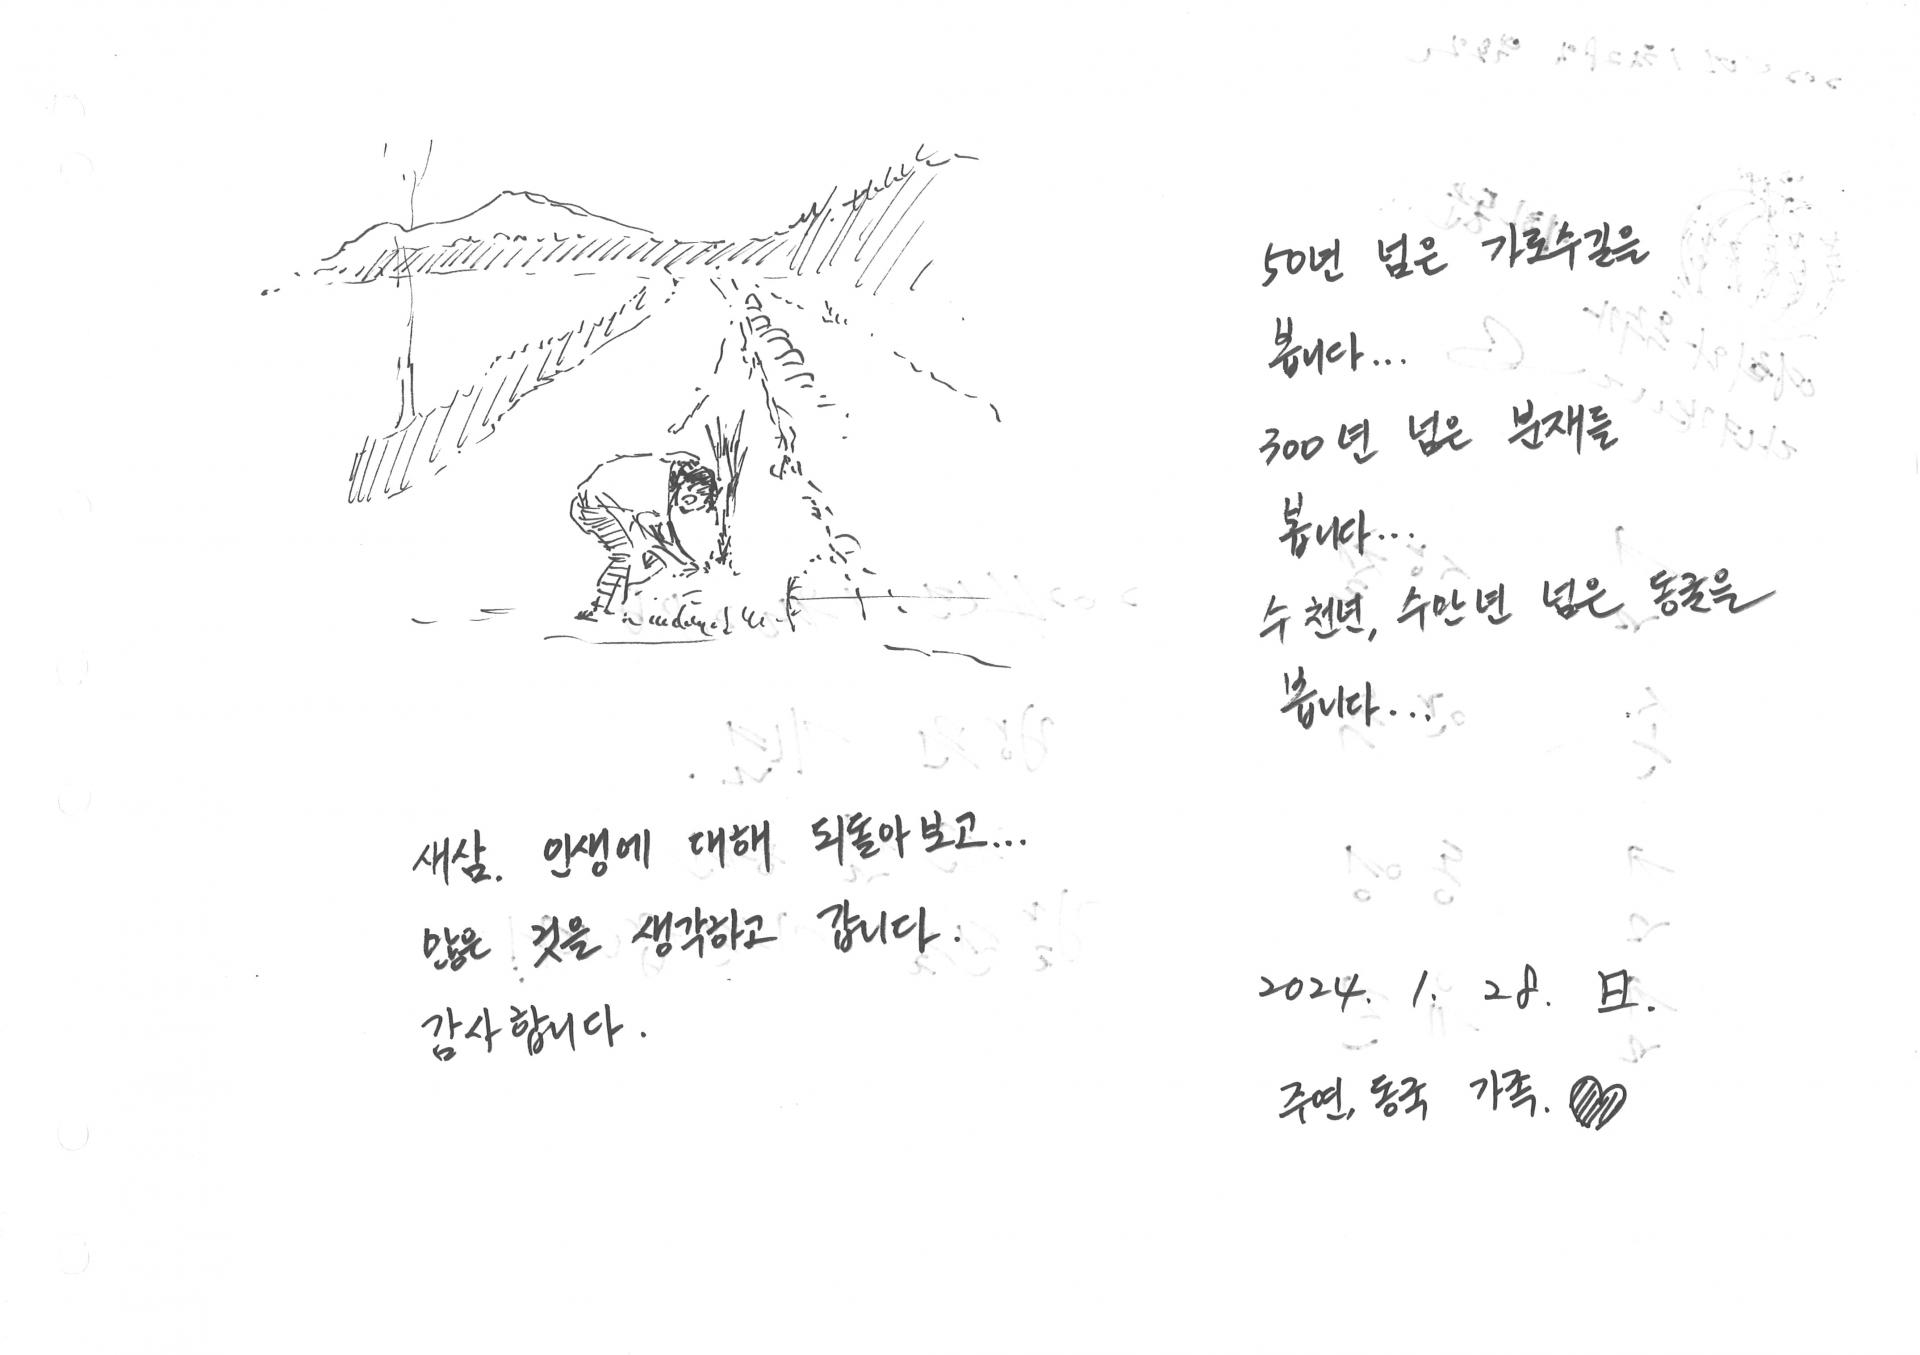 50년 넘은 가로수길을
봅니다...
300년 넘은 분재를
봅니다....
수천년, 수만년 넘은 동굴을
봅니다...
새삼. 인생에 대해 되돌아보고...
많은 것을 생각하고 갑니다.
감사합니다.
2024. 1. 28. 日.
주연, 동국 가족.